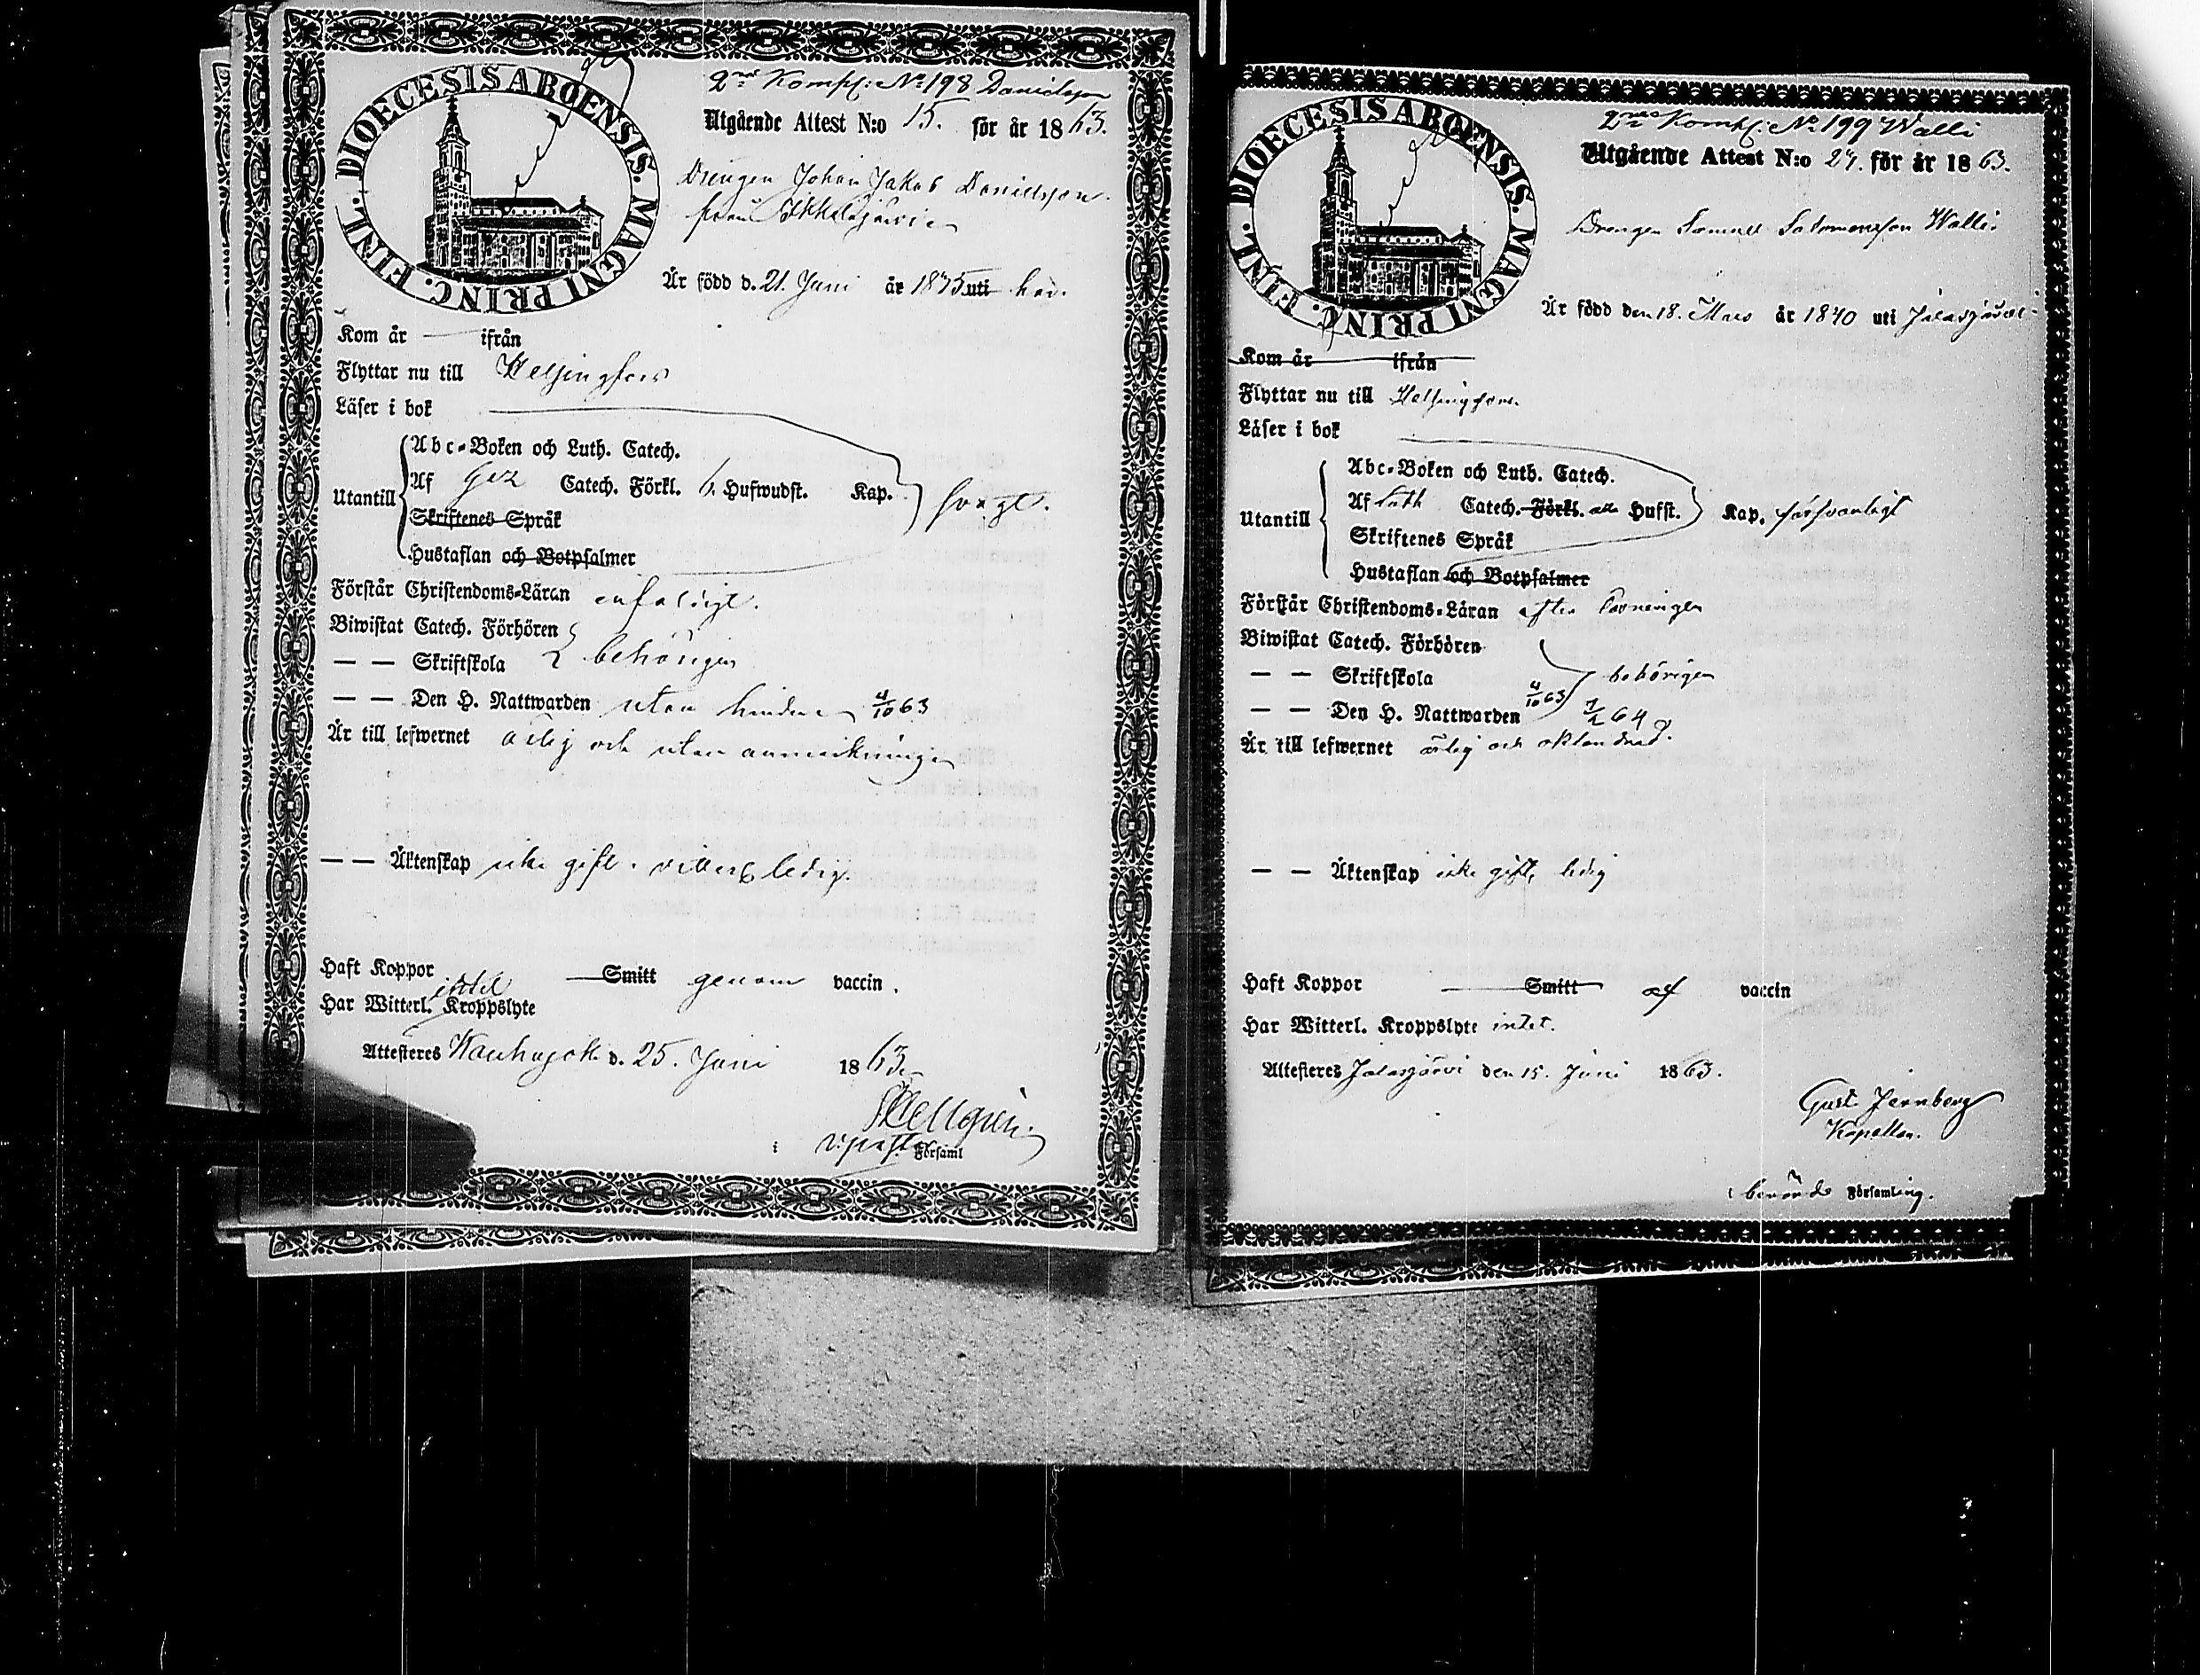 DIOECESIS ABOENSIS. MAGNI PRINC. FINL.
2ra Komp: No 198 Danielsson
Utgående Attest N:o 15. för år 1863.
Drengen Johan Jakob Danielsson
från
Är född d. 21. Juni år 1845 uti här.
Kom år — ifrån
Flyttar nu till Helsingfors
Läser i bok
Abc-Boken och Luth. Catech.
Utantill Af Catech. Förkl. 6. Hufwudst. Kap. svagt.
Skriftenes Språk
Hustaflan och Botpsalmer
Förstår Christendoms-Läran enfaldigt.
Biwistat Catech. Förhören
— — Skriftskola behörigen
— — Den H. Nattwarden utan hinder 4/10 63
Är till lefwernet ärlig och utan anmärkning
— — Äktenskap icke gift, ledig.
Haft Koppor — Smitt genom vaccin.
Har Witterl. Kroppslyte intet
Attesteres Kauhajoki d. 25. Juni 1863.
v. past.
i Församl
DIOECESIS ABOENSIS. MAGNI PRINC. FINL.
2ra Komp: No 199 Walli
Utgående Attest N:o 27. för år 1863.
Drengen Samuel Salomonsson Walli
Är född den 18. Mars år 1840 uti Jalasjärvi
Kom år ifrån
Flyttar nu till Helsingfors.
Läser i bok
Abc-Boken och Luth. Catech.
Utantill Af Luth Catech. Förkl. alla Hufst. Kap. försvarligt
Skriftenes Språk
Hustaflan och Botpsalmer
Förstår Christendoms-Läran efter
Biwistat Catech. Förhören
— — Skriftskola behörigen
— — Den H. Nattwarden 4/10 63 64
Är till lefwernet ärlig och oklandrad.
— — Äktenskap icke gift, ledig
Haft Koppor — Smitt af vaccin
Har Witterl. Kroppslyte intet.
Attesteres Jalasjärvi den 15. Juni 1863.
Gust. Jernberg
Kapellan.
i berörde Församling.